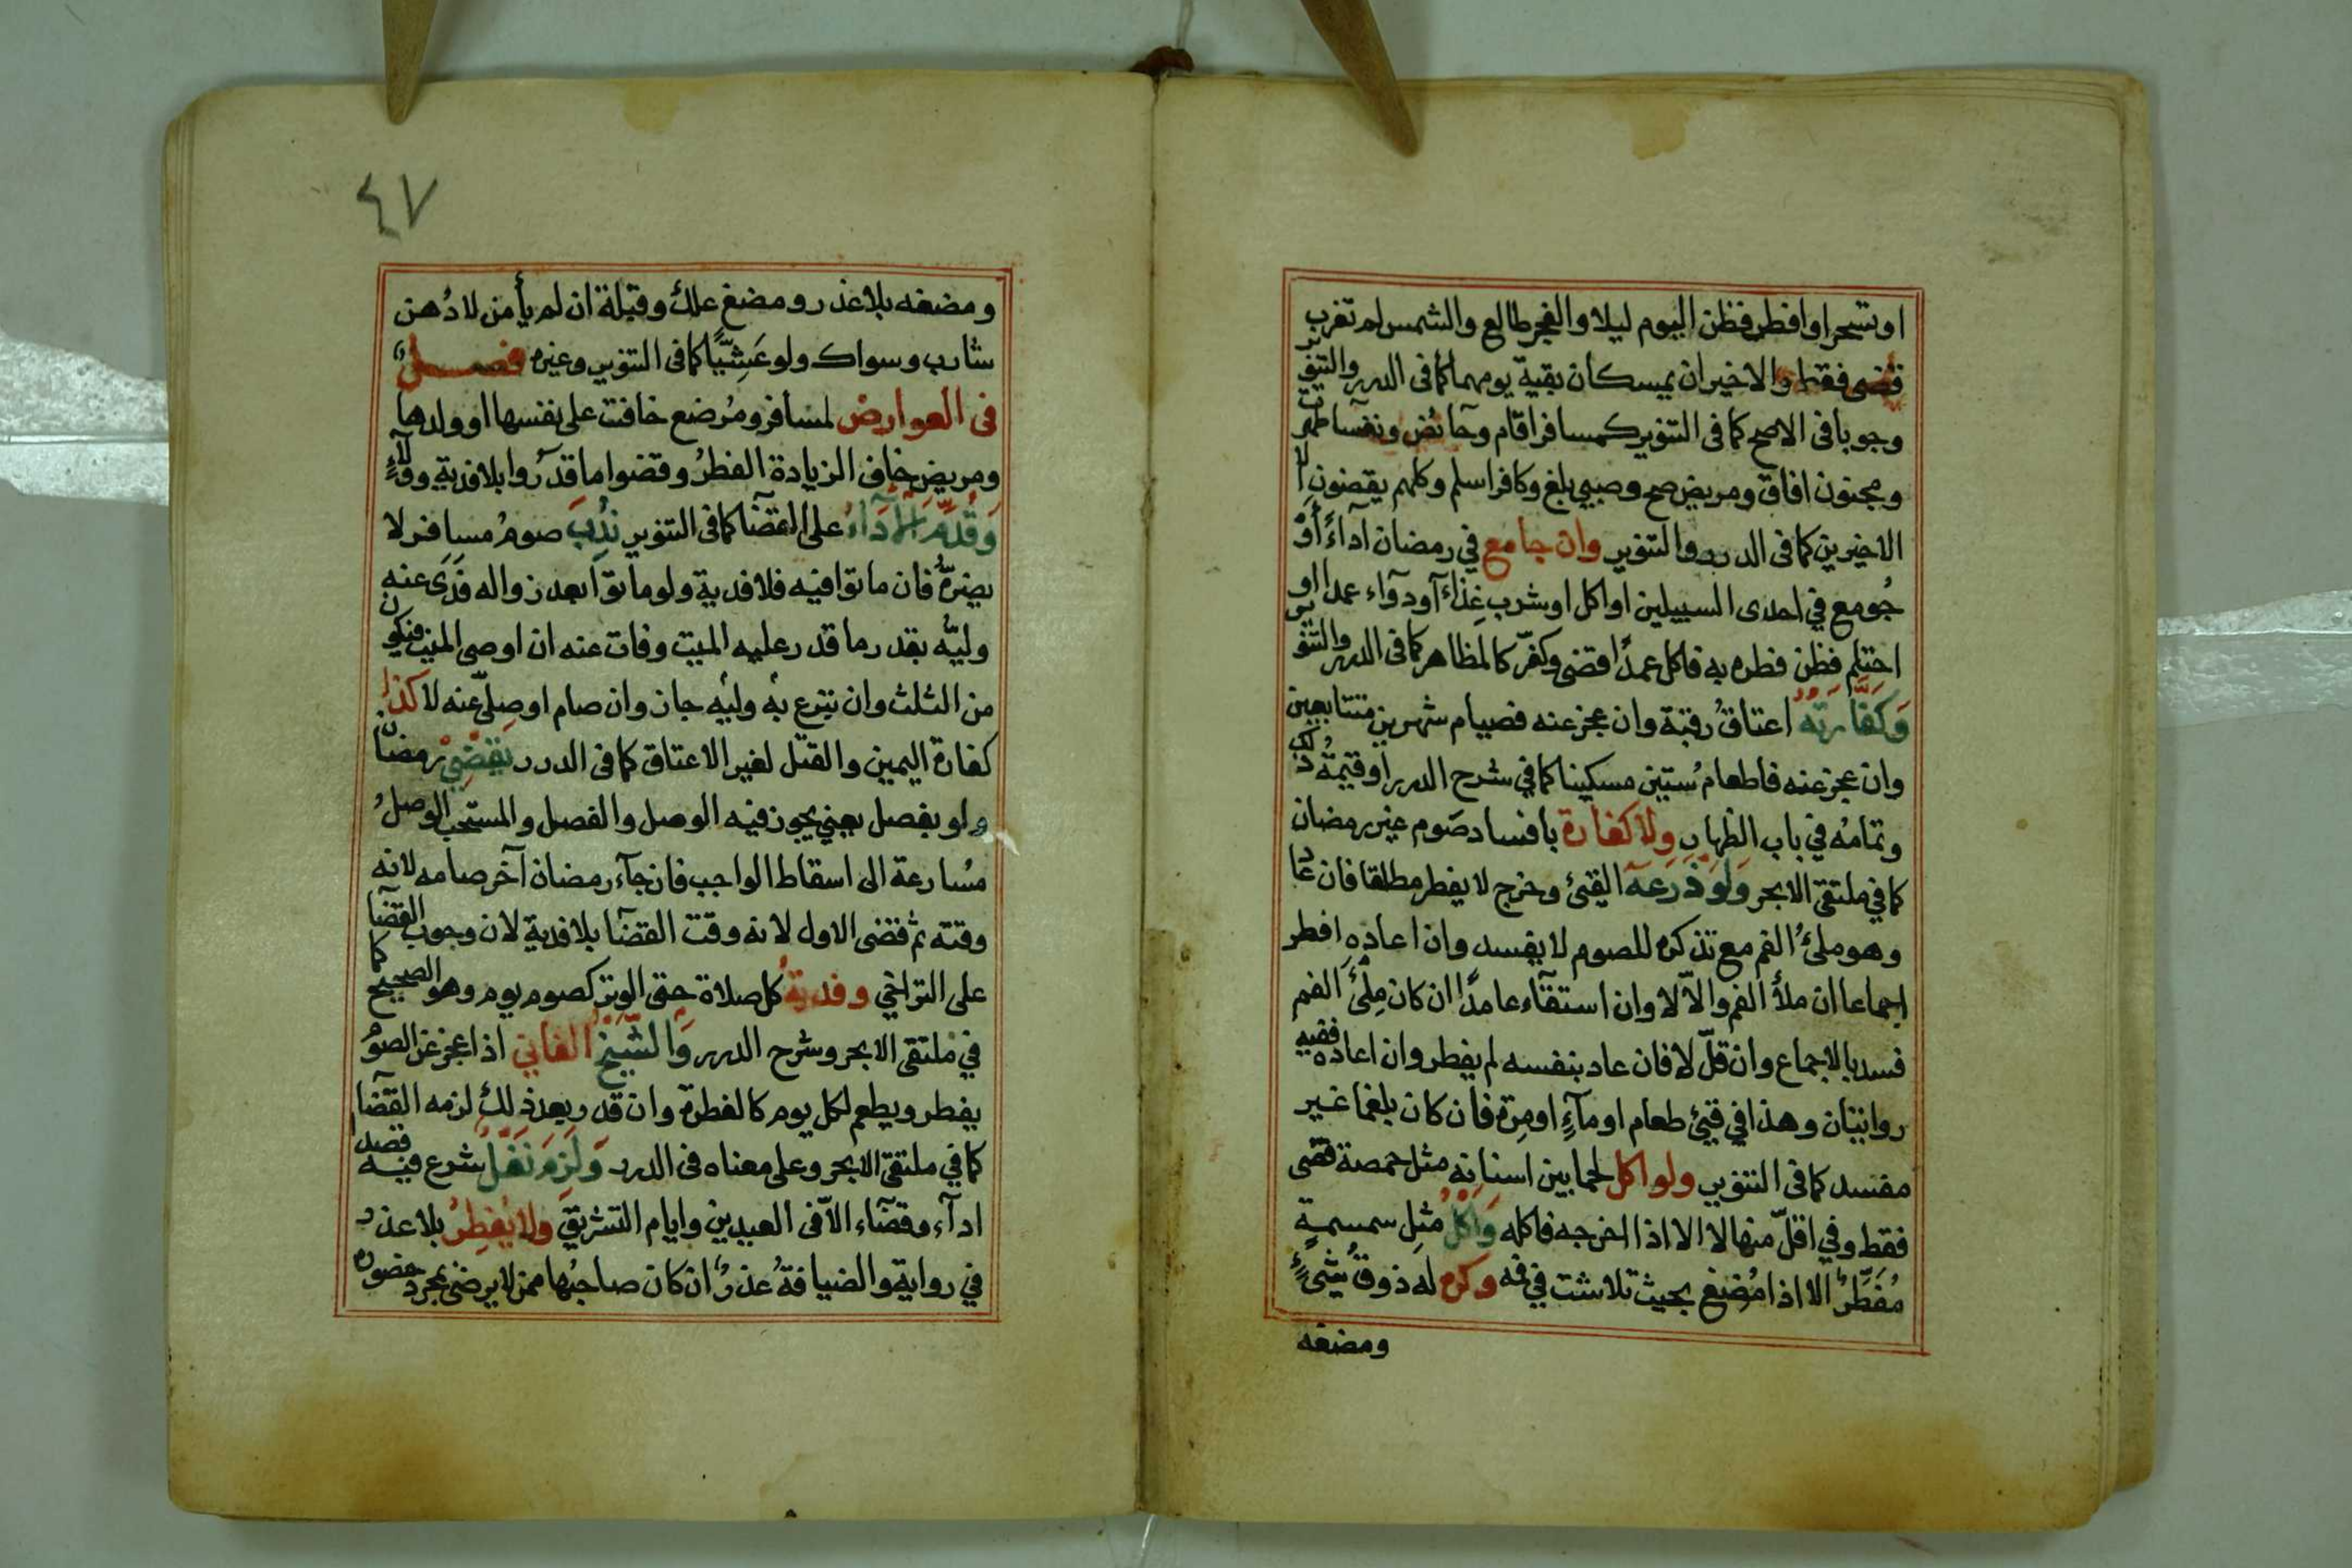 او تسحر او افطر فظن اليوم ليلا والفجر طالع والشمس لم تغرب
قضى فقط والاخيران يمسكان بقية يومهما كما فى الدرر والتنوير
وجوبا فى الاصح كما فى التنوير كمسافر اقام وحآئض ونفسآ طهرتا
ومجنون افاق ومريض صح وصبي بلغ وكافر اسلم وكلهم يقضون الا
الاخيرين كما فى الدرر والتنوير وان جامع في رمضان اداءً أَوْ
جُومع في احدى السبيلين او اكل او شرب غِذاءً أو دوآء عمدا او
احتلم فظن فطره به فاكل عمدًا قضى وكفّر كالمظاهر كما فى الدرر والتنوير
وَكَفَّارَتُهُ اعتاقُ رقبة وان عجز عنه فصيام شهرين متتابعين
وان عجز عنه فاطعام ستين مسكينا كما في شرح الدرر او قيمةُ ذلك
وتمامُه في باب الظهار ولا كفارة بافساد صَوم غير رمضان
كما في ملتقى الابحر وَلَوْ ذَرَعَهُ القيئ وخرج لا يفطر مطلقا فان عاد
وهو ملئُ الفم مع تذكره للصوم لا يفسد وان اعاده افطر
اجماعا ان ملأ الفم والاّ لا وان استقآء عامدًا ان كان مِلْئَ الفم
فسد بالاجماع وان قلّ لا فان عاد بنفسه لم يفطر وان اعاده ففيه
روايتان وهذا في قيئ طعام او مآءٍ او مِرة فان كان بلغما غير
مفسد كما فى التنوير ولو اكل لحما بين اسنانه مثل حمصة قضى
فقط وفي اقلّ منها لا الا اذا اخرجه فاكله وَاَكْلُ مثلِ سمسمةٍ
مُفَطِّرٌ الا اذا مُضِغ بحيث تلاشت في فمه وكره له ذوقُ شيئٍ
ومضغه
٤٧
ومضغه بلا عذر ومضغ علك وقبلة ان لم يأمن لا دُهن
شارب وسواك ولو عَشِيًّا كما فى التنوير وغيره فصل
فى العوارض لمسافر ومُرضع خافت على نفسها او ولدها
ومريض خاف الزيادة الفطرُ وقضوا ما قدَرُوا بلا فدية وولاءٍ
وَقُدِّمَ الاَدَآءُ على القضآ كما فى التنوير نُدِبَ صومُ مسافر لا
يضرّه فان ماتوا فيه فلا فدية ولو ماتوا بعد زواله فَدَى عنه
وليّه بقدر ما قدر عليه الميت وفات عنه ان اوصى الميت فيكون
من الثلث وان تبرع به وليه جاز وان صام او صلّى عنه لا كذا
كفارة اليمين والقتل لغير الاعتاق كما فى الدرر يَقْضِيْ رمضان
ولو بفصل يعني يجوز فيه الوصل والفصل والمستحب الوصلُ
مُسارعة الى اسقاط الواجب فان جآء رمضان آخر صامه لانه
وقته ثم قضى الاول لانه وقت القضآ بلا فدية لان وجوب القضآ
على التراخي وفديةُ كل صلاة حتى الوتر كصوم يوم وهو الصحيح كما
في ملتقى الابحر وشرح الدرر وَالشَّيْخُ الفاني اذا عجز عن الصوم
يفطر ويطعم لكل يوم كالفطرة وان قدر بعد ذلك لزمه القضآ
كما في ملتقى الابحر وعلى معناه فى الدرر وَلَزِمَ نَفْلٌ شرع فيه قصد
ادآء وقضآء الاّ فى العيدين وايام التشريق ولا يُفطِرُ بلا عذر
في رواية والضيافةُ عذرٌ ان كان صاحبُها ممن لا يرضى بمجرد حضوره